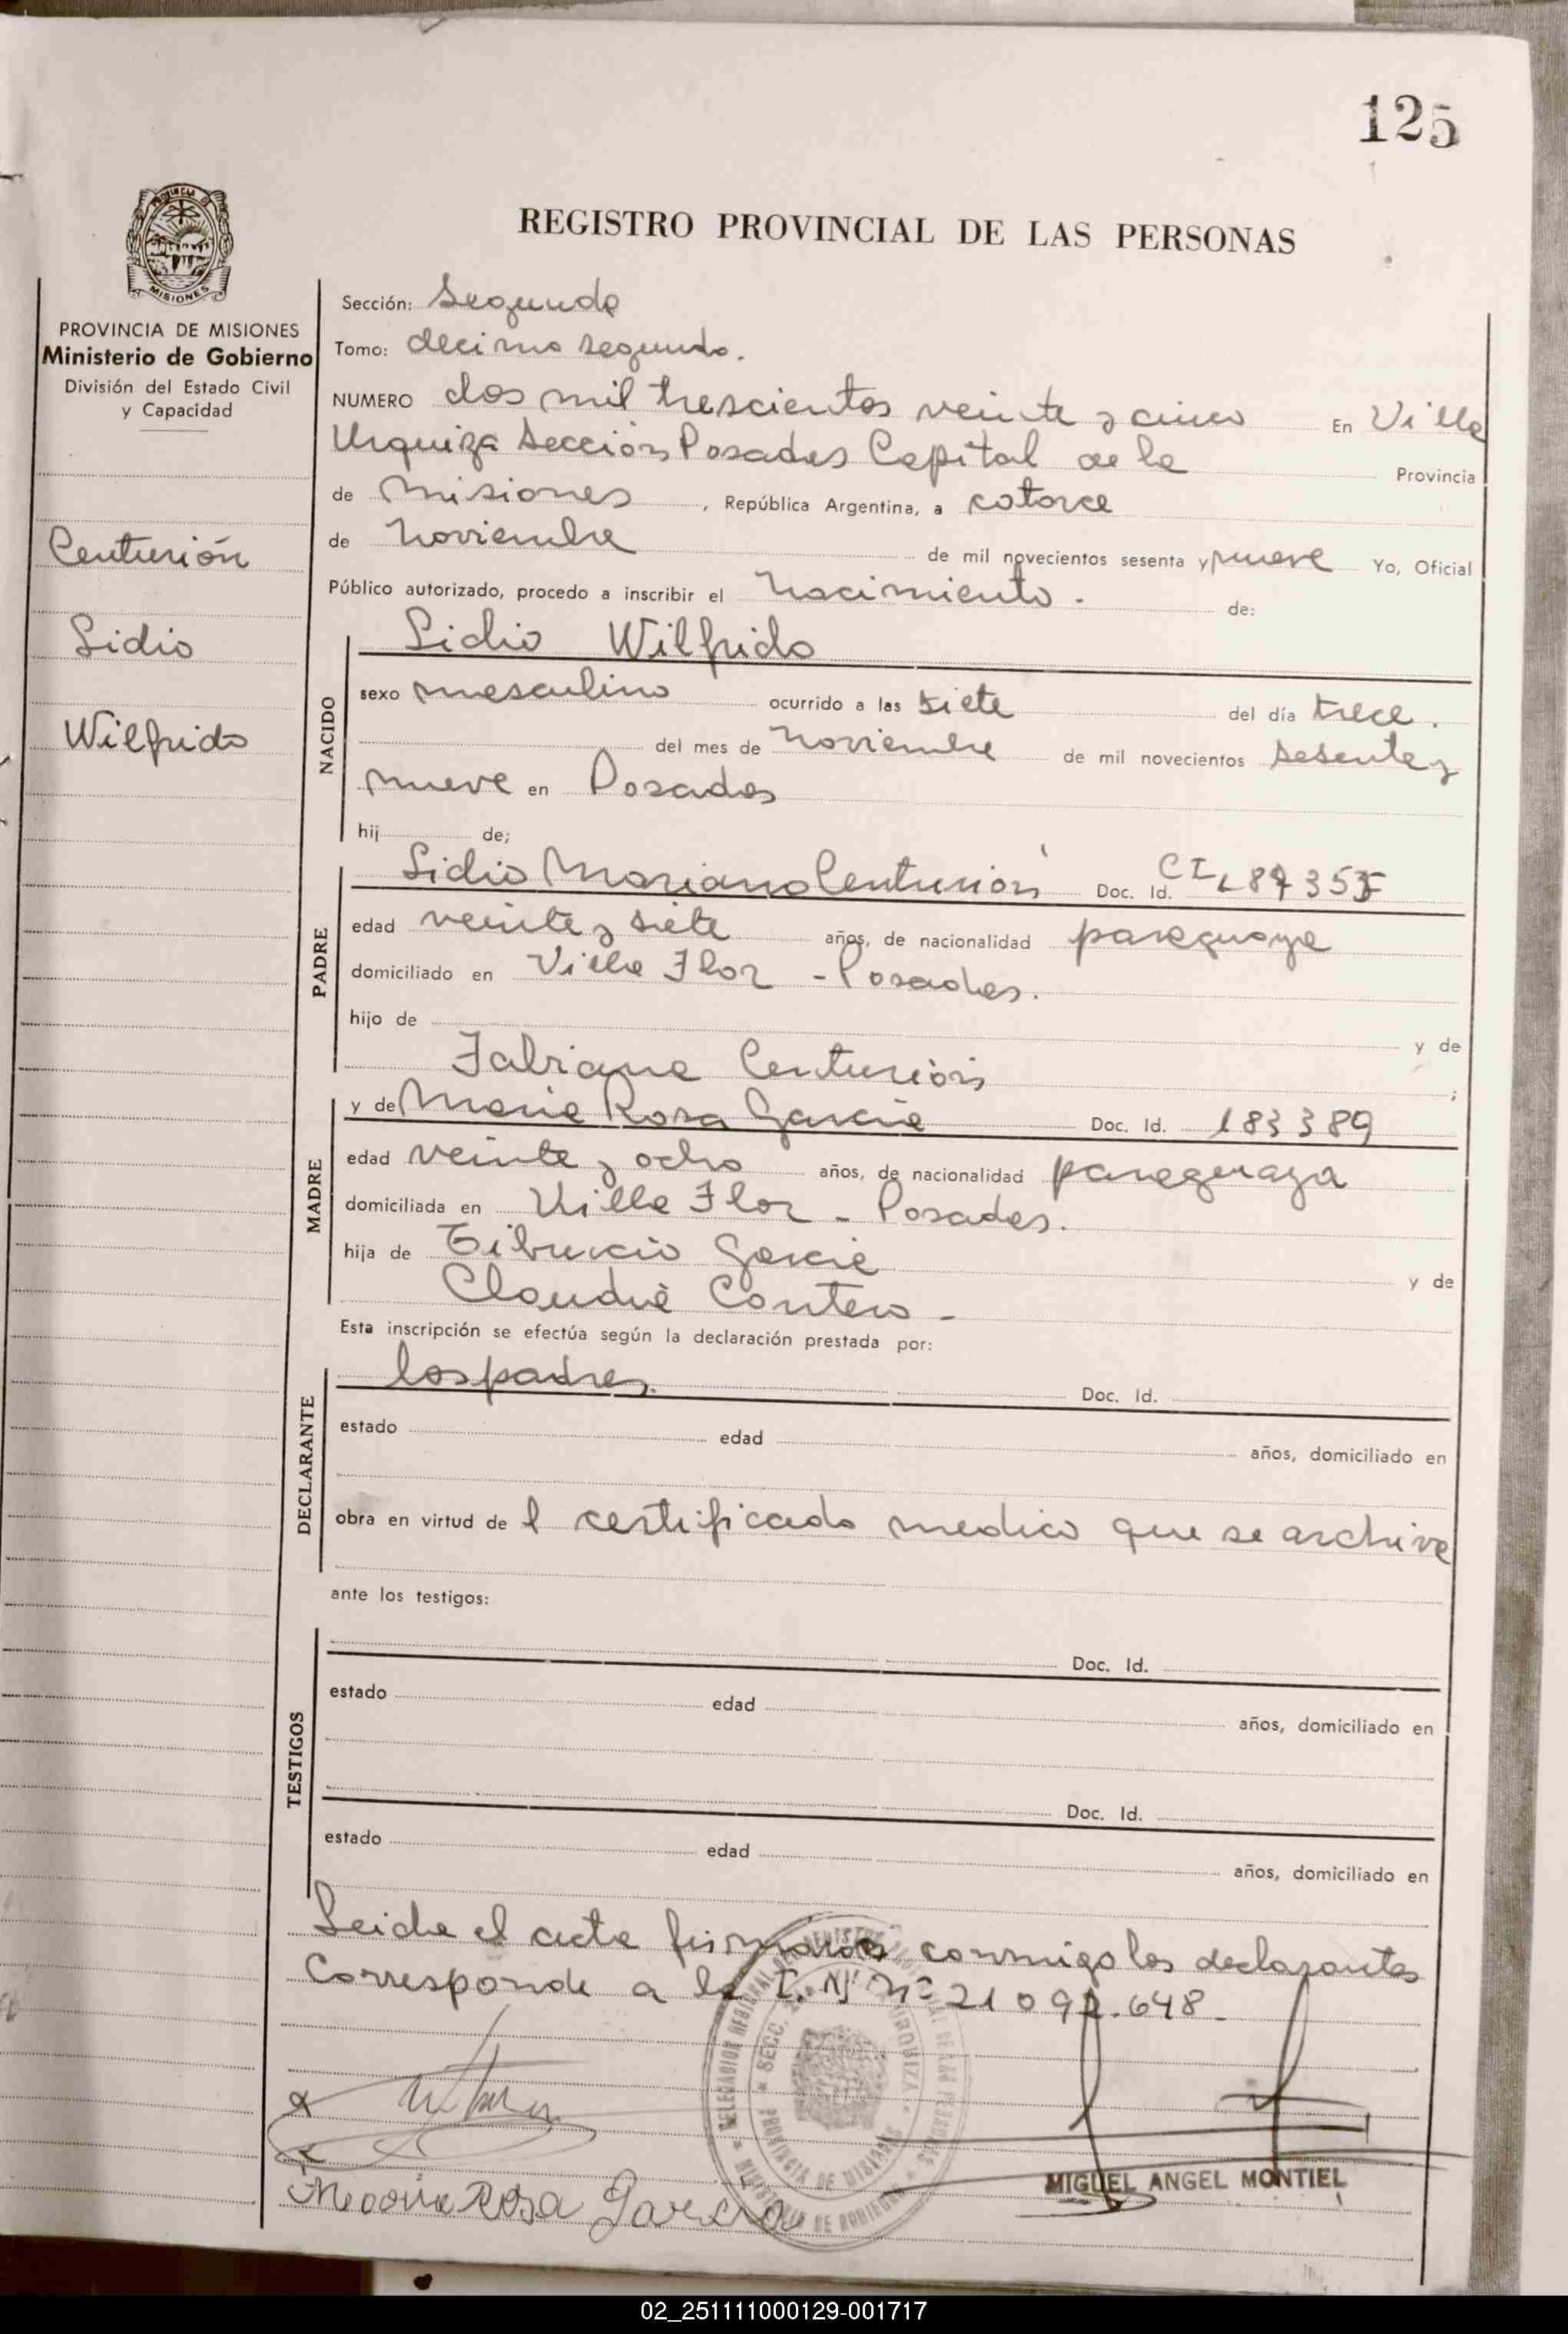 125
REGISTRO PROVINCIAL DE LAS PERSONAS
MISIONES
PROVINCIA DE MISIONES
Ministerio de Gobierno
División del Estado Civil
y Capacidad
Centurión
Lidio
Wilfrido
Sección: Segunda
Tomo: decimo segundo.
NUMERO dos mil trescientos veinte y cinco En Villa
Urquiza Sección Posadas Capital de la Provincia
de Misiones, República Argentina, a catorce
de Noviembre de mil novecientos sesenta y nueve Yo, Oficial
Público autorizado, procedo a inscribir el Nacimiento. de:
NACIDO
Lidio Wilfrido
sexo masculino ocurrido a las siete del día trece.
del mes de Noviembre de mil novecientos sesenta y
nueve en Posadas
hij de;
PADRE
Lidio Mariano Centurión Doc. Id. CI
edad veinte y siete años, de nacionalidad paraguaya
domiciliado en Villa Flor - Posadas.
hijo de y de
Fabiana Centurión ;
MADRE
y de Maria Rosa Garcia Doc. Id. 183389
edad veinte y ocho años, de nacionalidad paraguaya
domiciliada en Villa Flor - Posadas.
hija de Tiburcio Garcia y de
Claudia Contero -
Esta inscripción se efectúa según la declaración prestada por:
DECLARANTE
los padres. Doc. Id.
estado edad años, domiciliado en
obra en virtud de l certificado medico que se archiva
ante los testigos:
TESTIGOS
Doc. Id.
estado edad años, domiciliado en
Doc. Id.
estado edad años, domiciliado en
Leida el acta firman conmigo los declarantes
Corresponde a la I. Nº 21 092.648
Rosa Garcia
MIGUEL ANGEL MONTIEL
02_251111000129-001717